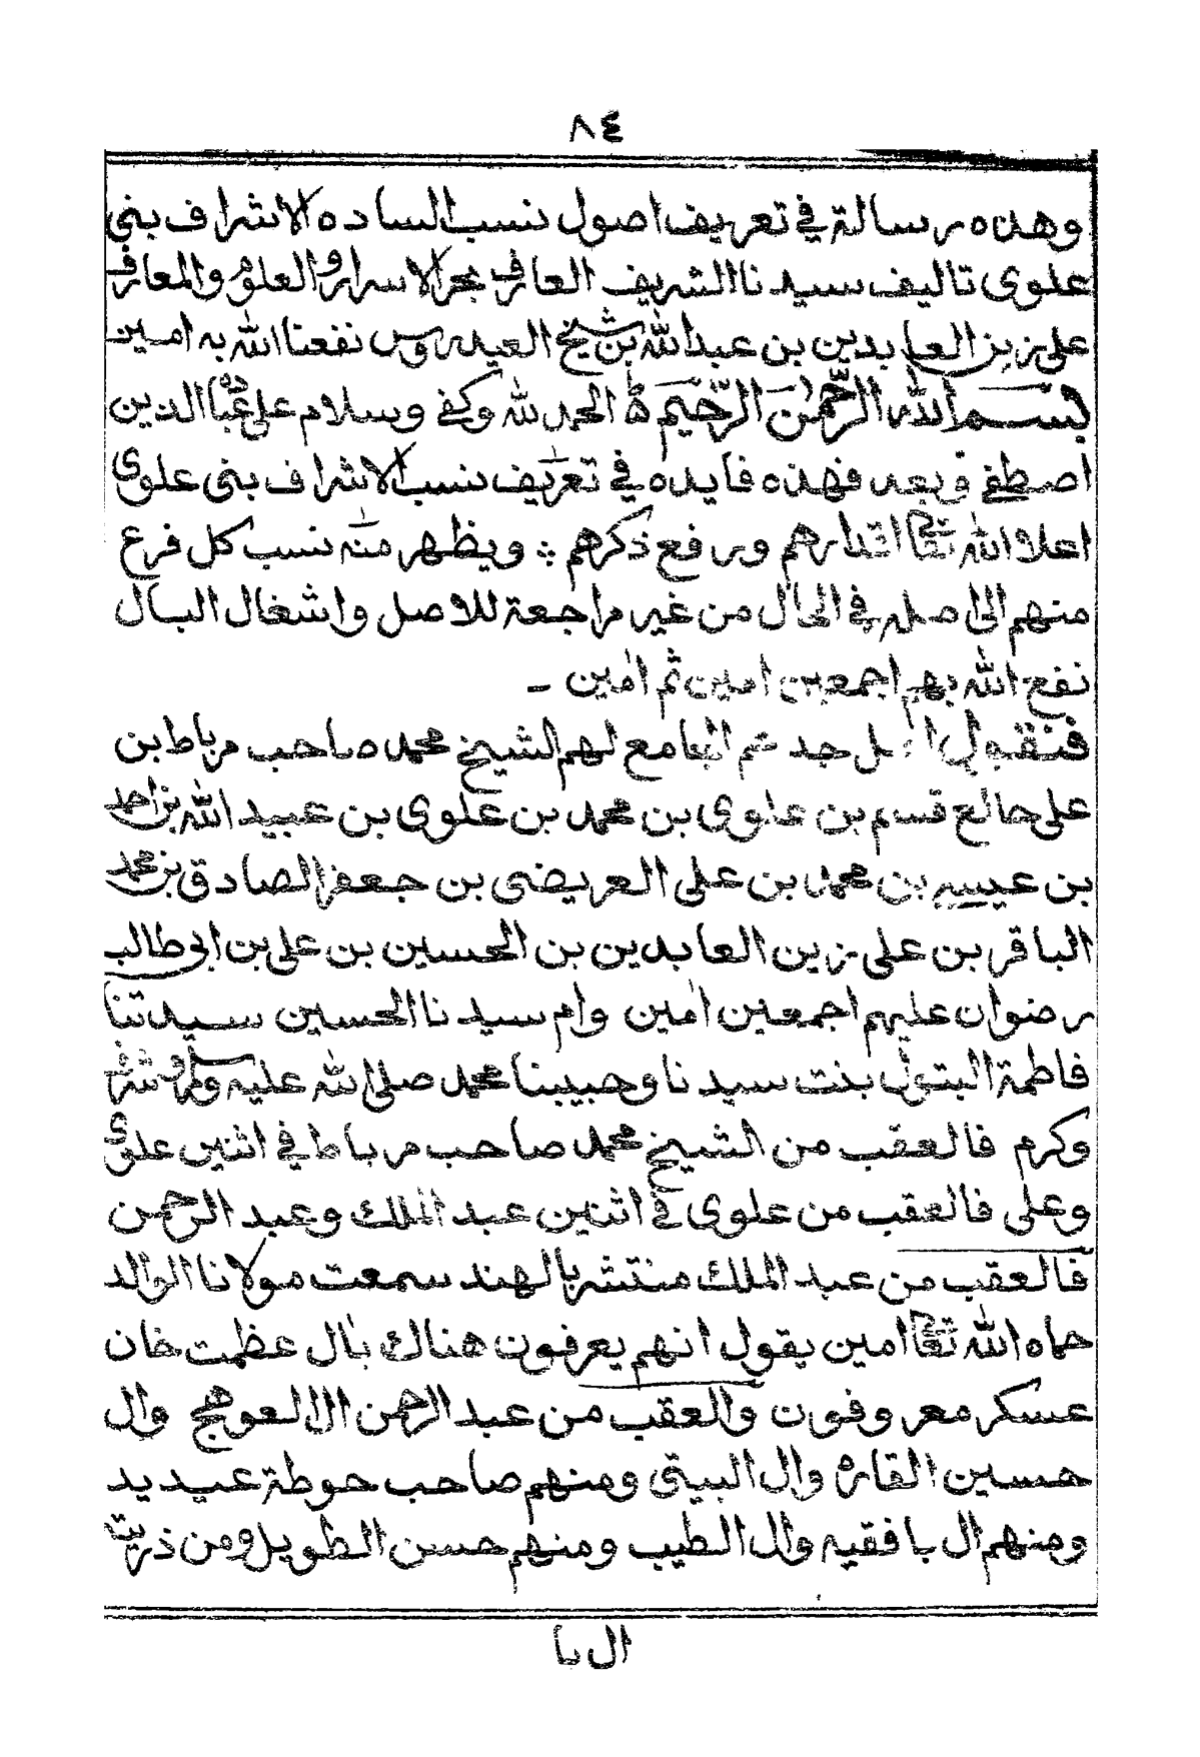 ٨٤
وهذه رسالة في تعريف اصول نسب الساده الاشراف بني
علوى تاليف سيدنا الشريف العارف بحر الاسرار والعلوم والمعارف
على زين العابدين بن عبدالله بن شيخ العيدروس نفعنا الله به امين
بسم الله الرحمٰن الرّحيم الحمد لله وكفى وسلام على عباده الذين
اصطفى وبعد فهذه فايده في تعريف نسب الاشراف بنى علوى
اعلا الله تعالى اقدارهم ورفع ذكرهم ؛ ويظهر منه نسب كل فرع
منهم الى اصله في الحال من غير مراجعة للاصل واشغال البال
نفع الله بهم اجمعين امين ثم امين -
فنقول جد الجامع لهم الشيخ محمد صاحب مرباط بن
على خالع قسم بن علوى بن محمد بن علوى بن عبيد الله بن احمد
بن عيسى بن محمد بن على العريضى بن جعفر الصادق بن محمد
الباقر بن على زين العابدين بن الحسين بن على بن ابى طالب
رضوان عليهم اجمعين امين وام سيدنا الحسين سيدتنا
فاطمة البتول بنت سيدنا وحبيبنا محمد صلى الله عليه وسلم وشرف
وكرم فالعقب من الشيخ محمد صاحب مرباط في اثنين علوى
وعلى فالعقب من علوى في اثنين عبد الملك وعبد الرحمن
فالعقب من عبد الملك منتشر بالهند سمعت مولانا الوالد
حماه الله تعالى امين يقول انهم يعرفون هناك بال عظمت خان
عسكر معروفون والعقب من عبد الرحمن ال العوهج وال
حسين القاره وال البيتى ومنهم صاحب حوطة عيديد
ومنهم ال بافقيه وال الطيب ومنهم حسن الطويل ومن ذريته
ال با